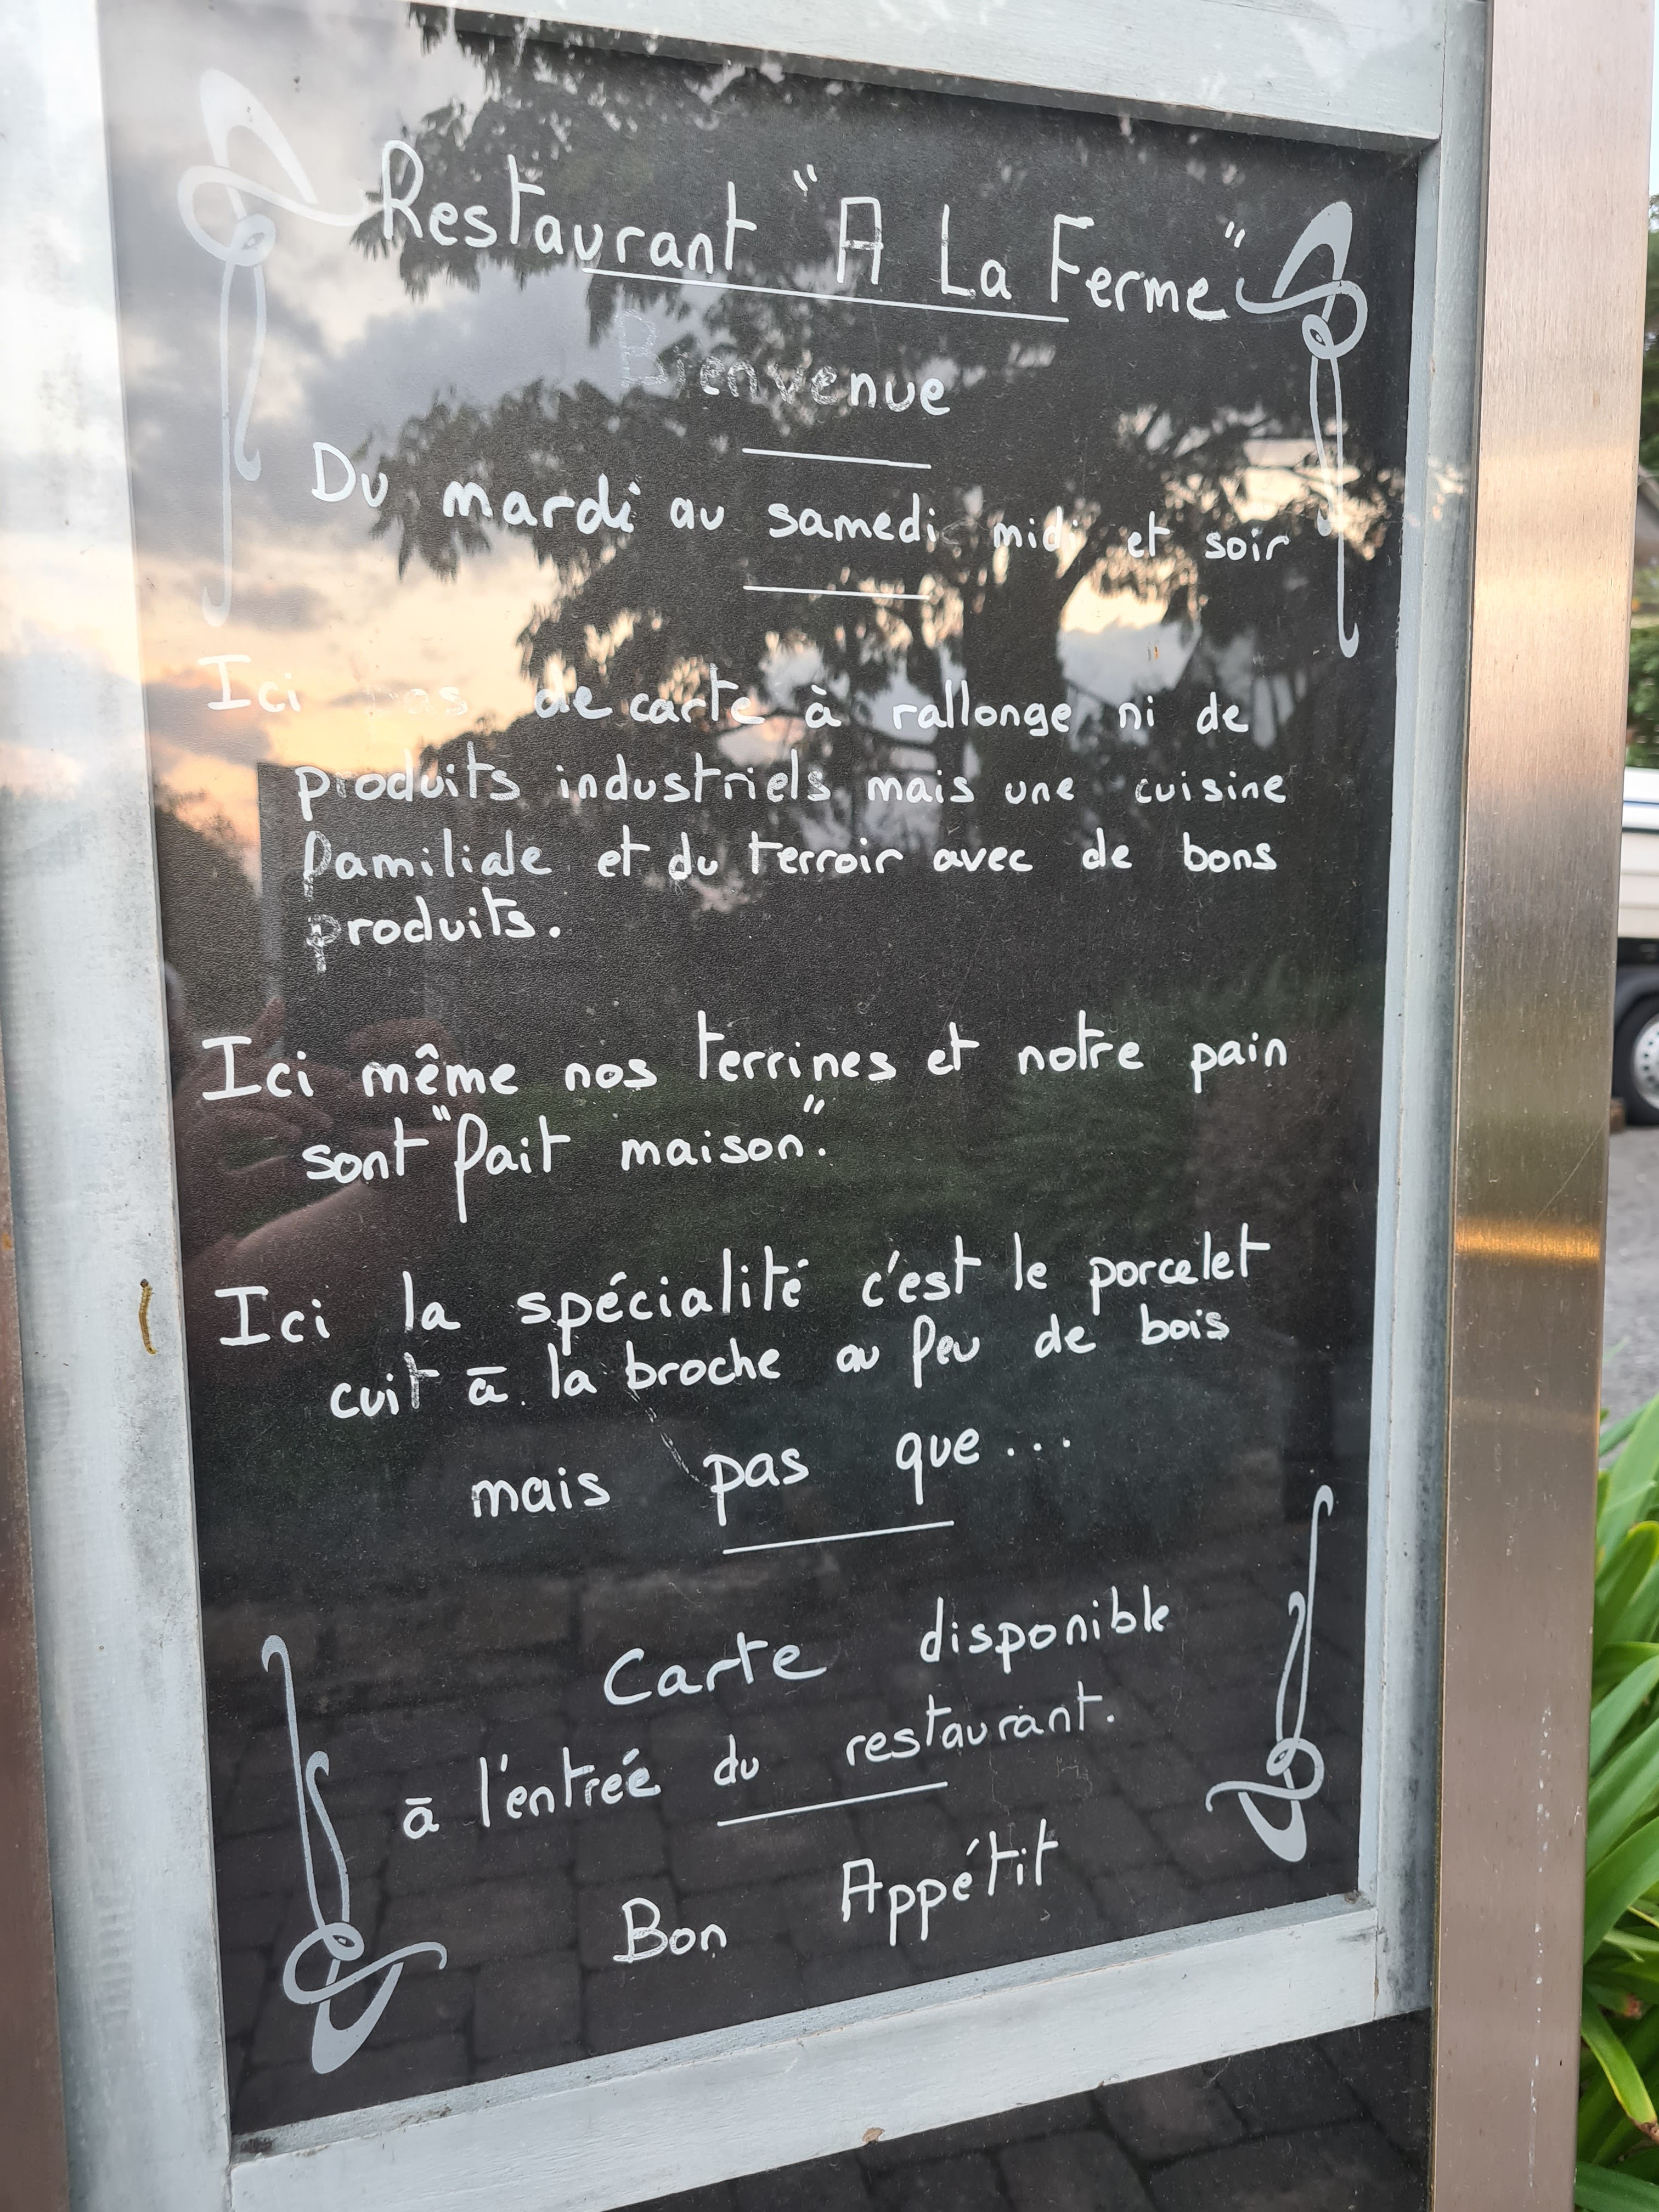 Restaurant "A La Ferme"
Bienvenue
Du mardi au samedi midi et soir
Ici pas de carte à rallonge ni de
produits industriels mais une cuisine
familiale et du terroir avec de bons
produits.
Ici même nos terrines et notre pain
sont "fait maison".
Ici la spécialité c'est le porcelet
cuit à la broche au feu de bois
mais pas que...
Carte disponible
à l'entrée du restaurant.
Bon Appétit